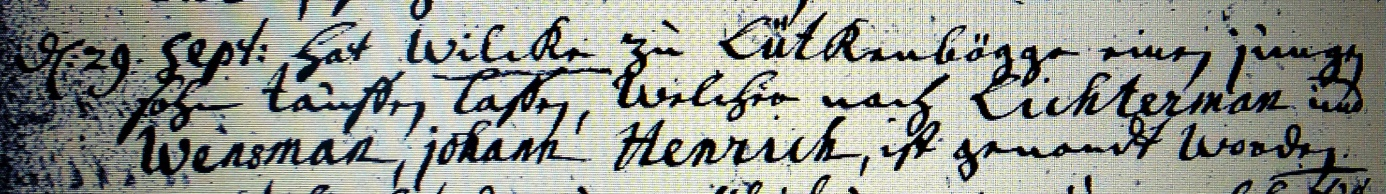 d. 29. Sept: hat Wilcke zu Lütkenbögge einen jungen
sohn täuffen laßen, Welcher nach Lichterman und
Wensman, johann Henrich, ist genandt Worden.